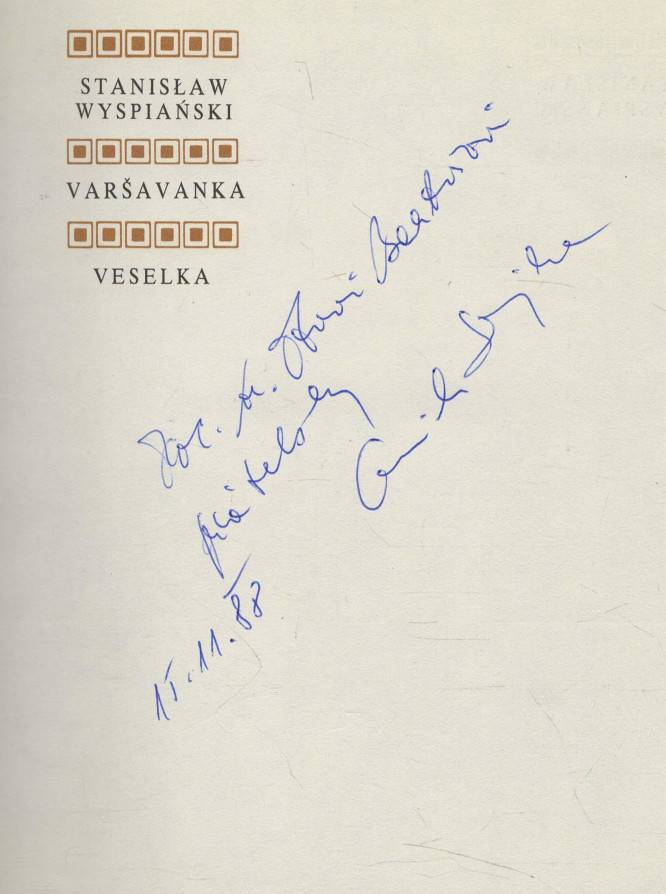 STANISŁAW
WYSPIAŃSKI
VARŠAVANKA
VESELKA
Doc. dr. Otovi Bartošovi
přátelsky
15.11.88